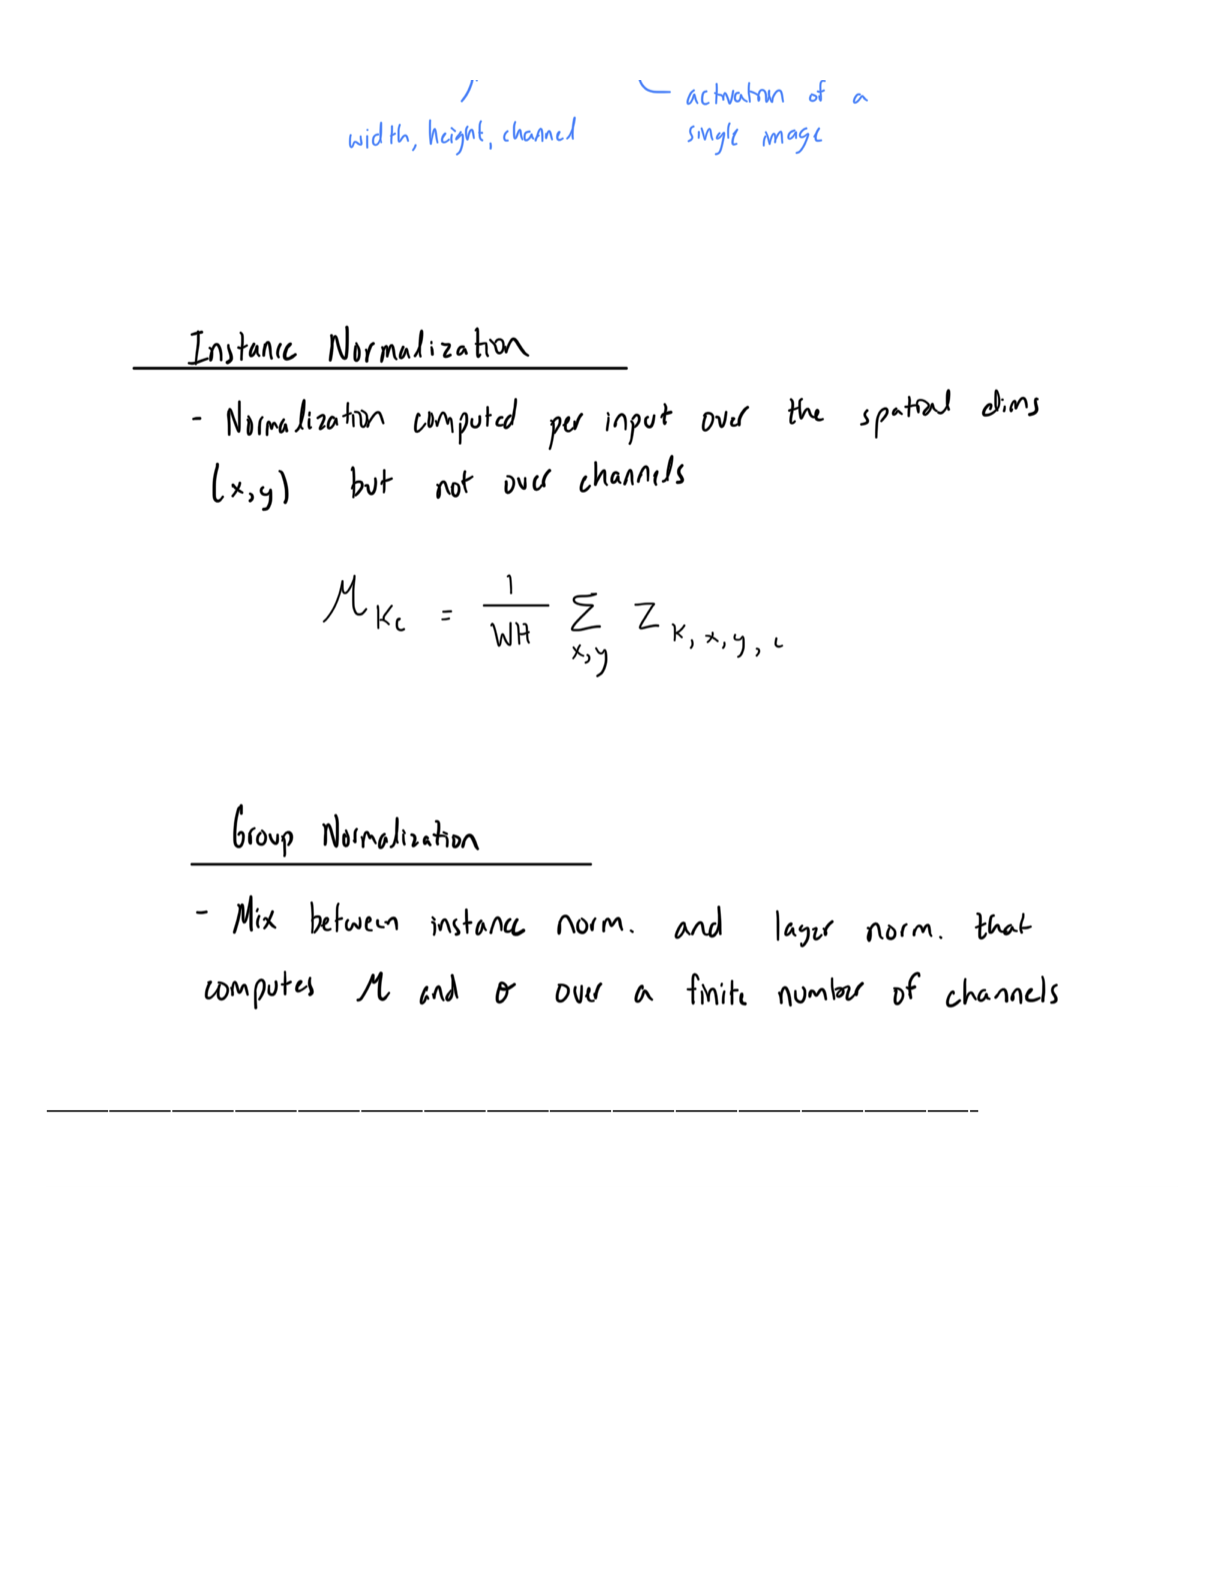 width, height, channel
activation of a
single image
Instance Normalization
- Normalization computed per input over the spatial dims
(x,y) but not over channels
μ_{kc} = \frac{1}{WH} \sum_{x,y} z_{k,x,y,c}
Group Normalization
- Mix between instance norm. and layer norm. that
computes μ and σ over a finite number of channels